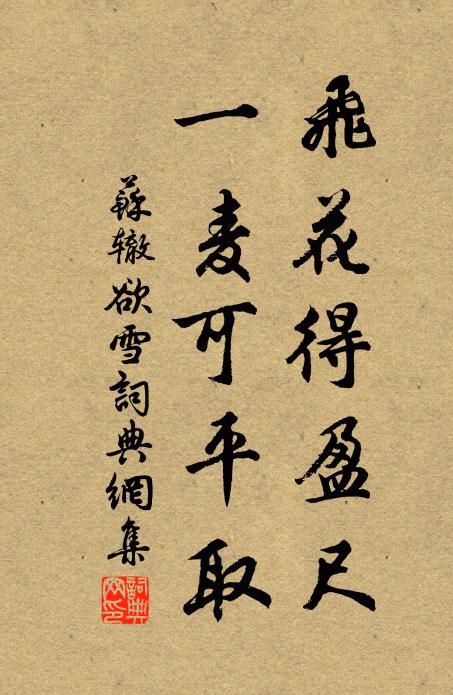 飛花得盈尺
一麦可平取
蘇辙欲雪詞典網集
詞典网印